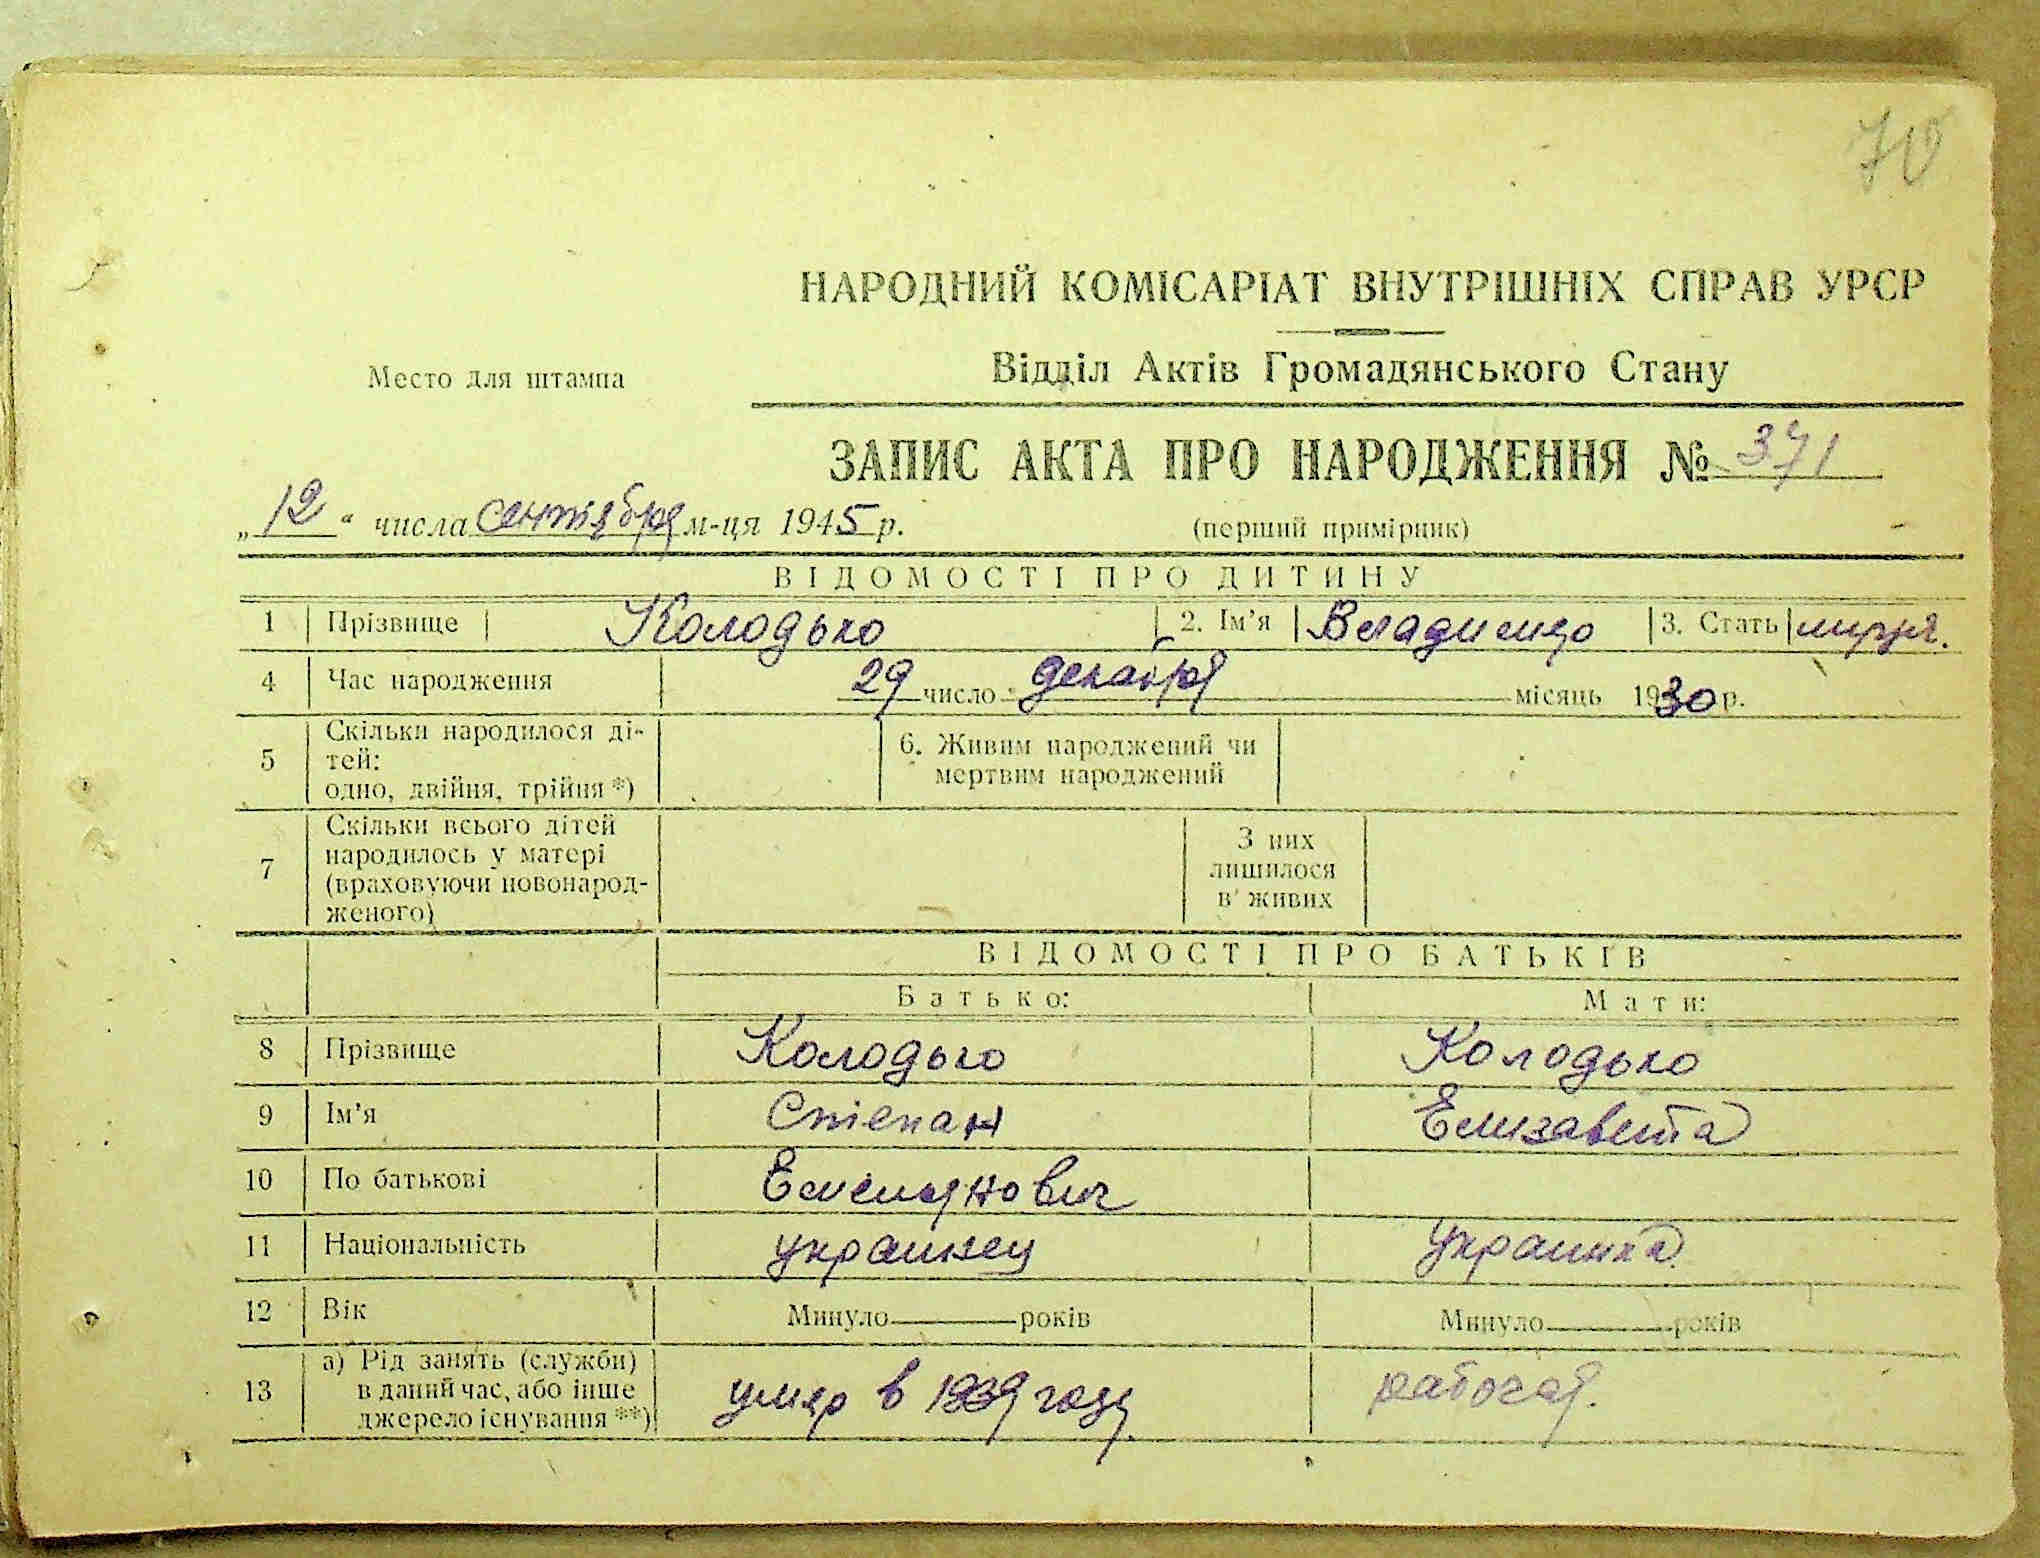 70
НАРОДНИЙ КОМІСАРІАТ ВНУТРІШНІХ СПРАВ УРСР
Место для штампа
Відділ Актів Громадянського Стану
ЗАПИС АКТА ПРО НАРОДЖЕННЯ № 371
„12“ числа сентября м-ця 1945 р.
(перший примірник)
ВІДОМОСТІ ПРО ДИТИНУ
1 Прізвище Колодько 2. Ім’я Владимир 3. Стать мужя.
4 Час народження 29 число декабря місяць 1930 р.
5 Скільки народилося ді-
тей:
одно, двійня, трійня *)
6. Живим народжений чи
мертвим народжений
7 Скільки всього дітей
народилось у матері
(враховуючи новонарод-
женого)
З них
лишилося
в живих
ВІДОМОСТІ ПРО БАТЬКІВ
Батько: Мати:
8 Прізвище Колодько Колодько
9 Ім’я Степан Елизавета
10 По батькові Емельянович
11 Національність украинец Украинка
12 Вік Минуло ... років Минуло ... років
13 а) Рід занять (служби)
в даний час, або інше
джерело існування **)
умер в 1939 году рабочая.